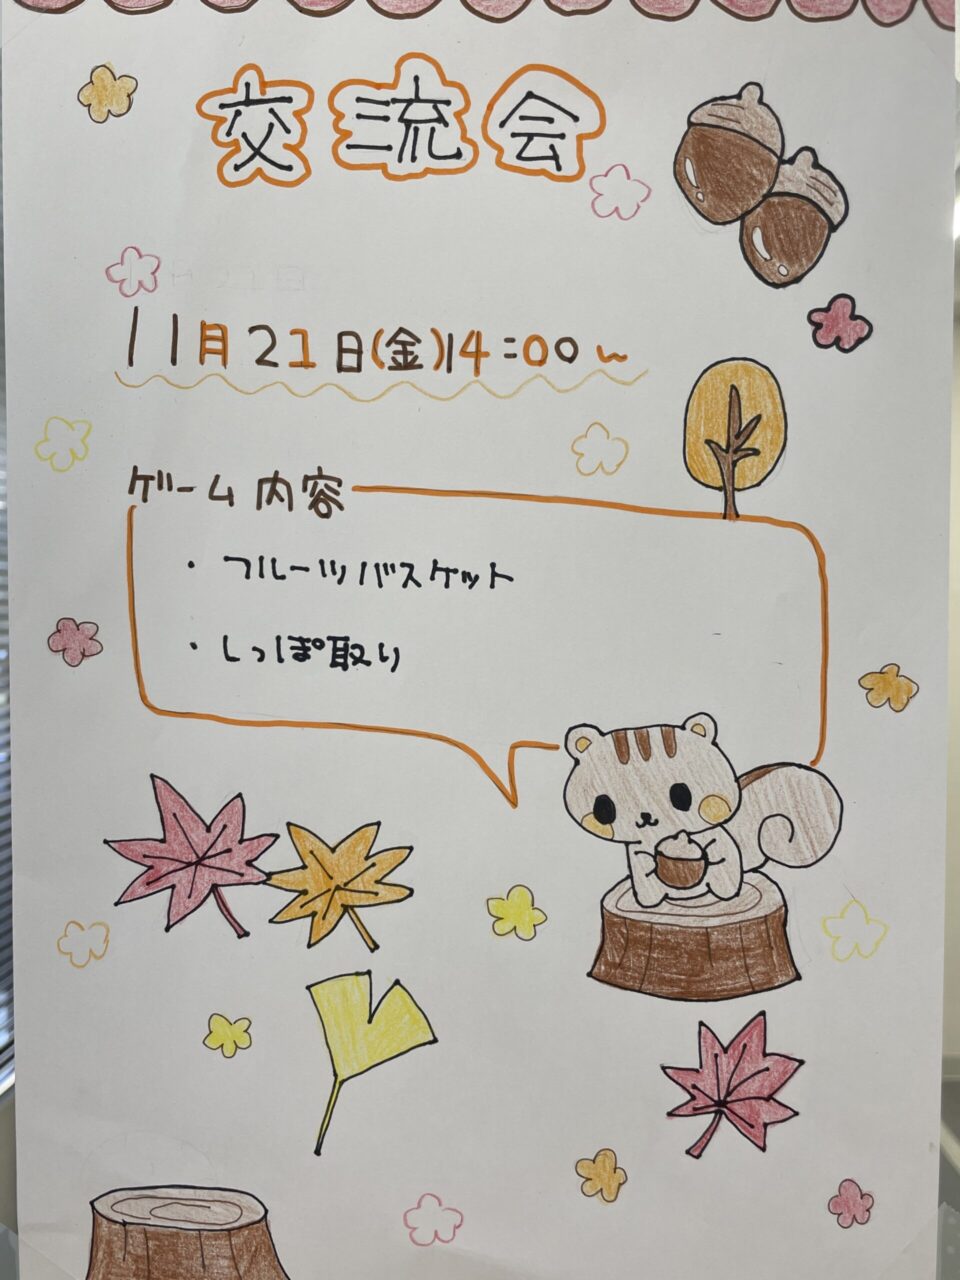 交流会
11月21日(金)14:00~
ゲーム内容
・フルーツバスケット
・しっぽ取り